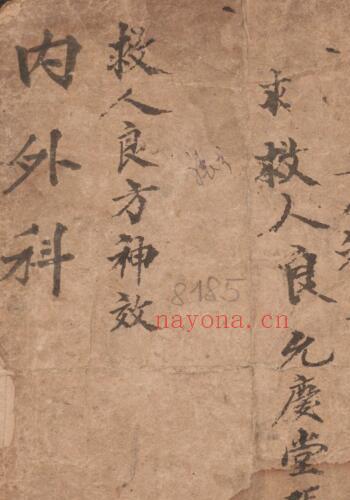 求救人良允慶堂
救人良方神效
内外科
8185
nayona.cn